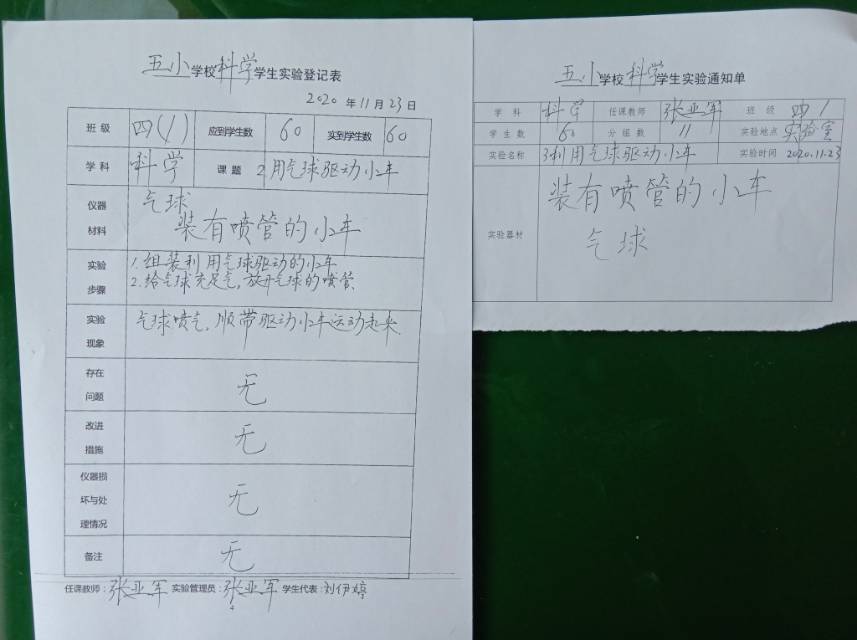 五小学校科学学生实验登记表
2020年11月23日
班级 四(1) 应到学生数 60 实到学生数 60
学科 科学 课题 2.用气球驱动小车
仪器材料 气球
装有喷管的小车
实验步骤 1.组装利用气球驱动的小车
2.给气球充足气,放开气球的喷管、
实验现象 气球喷气,顺带驱动小车运动起来
存在问题 无
改进措施 无
仪器损坏与处理情况 无
备注 无
任课教师:张亚军 实验管理员:张亚军 学生代表:刘伊婷
五小学校科学学生实验通知单
学科 科学 任课教师 张亚军 班级 四1
学生数 60 分组数 11 实验地点 实验室
实验名称 3利用气球驱动小车 实验时间 2020.11.23
实验器材 装有喷管的小车
气球